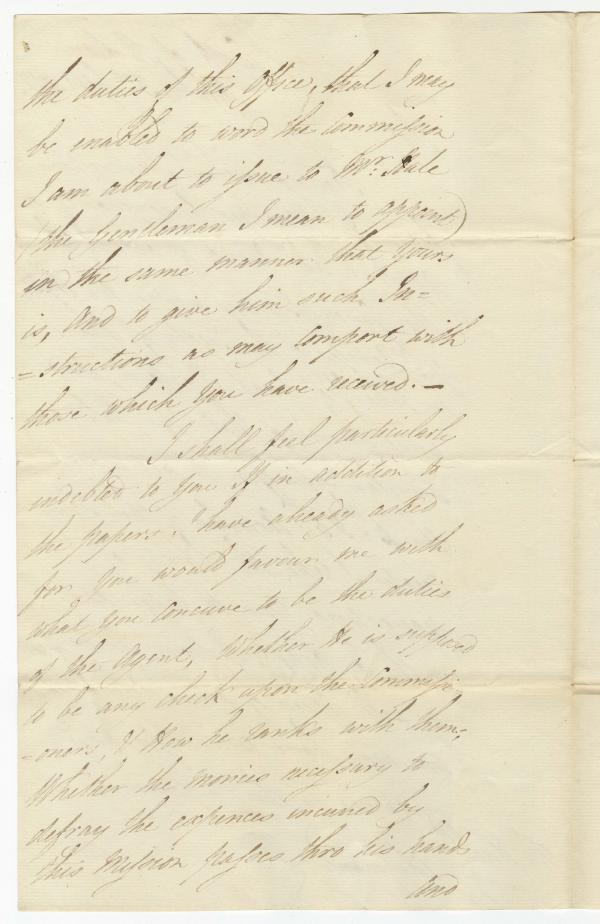 the duties of this Office, that I may
be enabled to word the Commission
I am about to issue to Mr. Hale
(the Gentleman I mean to appoint)
in the same manner that Yours
is, And to give him such In=
=structions as may Comport with
those which You have received. —
I shall feel particularly
indebted to You if in addition to
the papers, I have already asked
for You would favour me with
what you Conceive to be the duties
of the Agent, Whether He is supposed
to be any check upon the Commissi-
=oners, & How he ranks with them;
Whether the monies necessary to
defray the expences incurred by
this Mission passes thro his hands
and